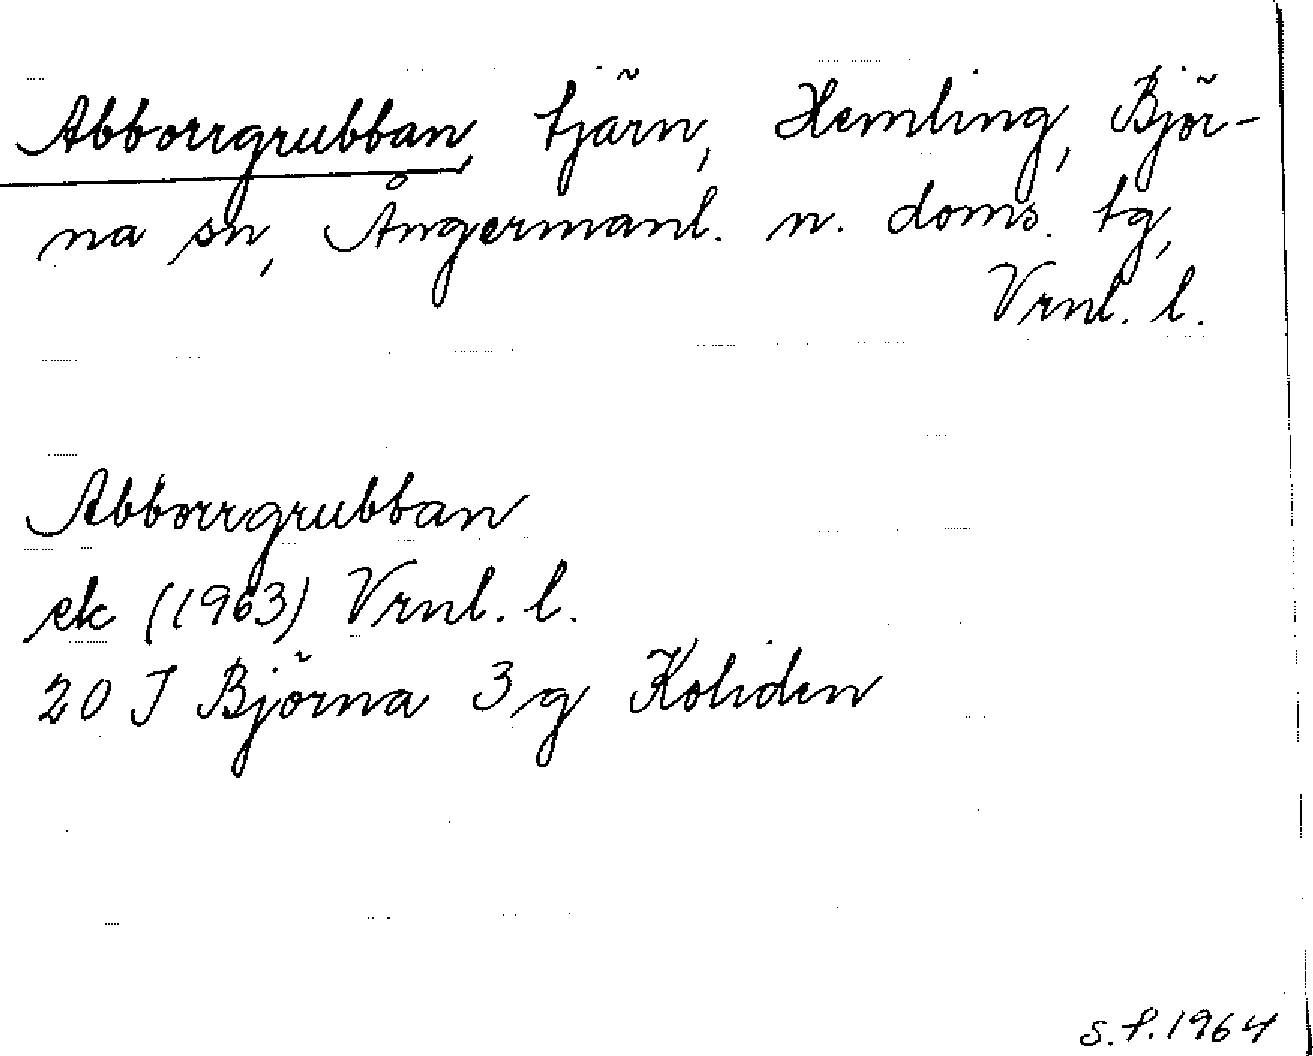 Abborrgrubban, tjärn, Hemling, Björ-
na sn, Ångermanl. n. doms. tg,
Vrnl. l.
Abborrgrubban
ek (1963) Vrnl. l.
20 J Björna 3 g Koliden
S.F. 1964